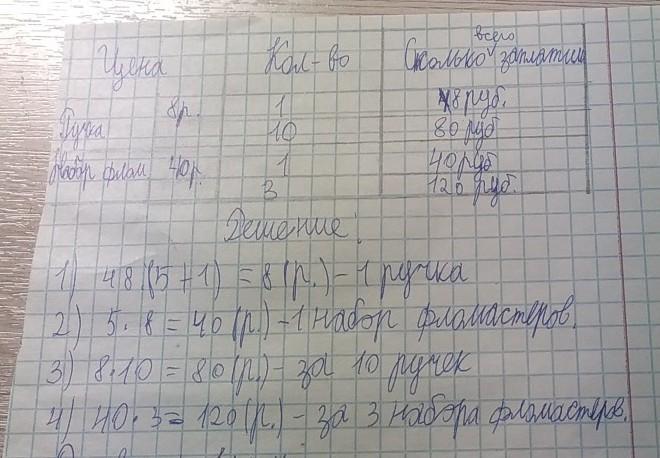 Цена Кол-во Сколько всего заплатили
Ручка 8р. 1 8 руб.
10 80 руб
Набор флом 40р. 1 40 руб
3 120 руб.
Решение:
1) 48:(5+1) = 8 (р.) - 1 ручка
2) 5·8 = 40 (р.) - 1 набор фломастеров.
3) 8·10 = 80 (р.) - за 10 ручек
4) 40·3 = 120 (р.) - за 3 набора фломастеров.